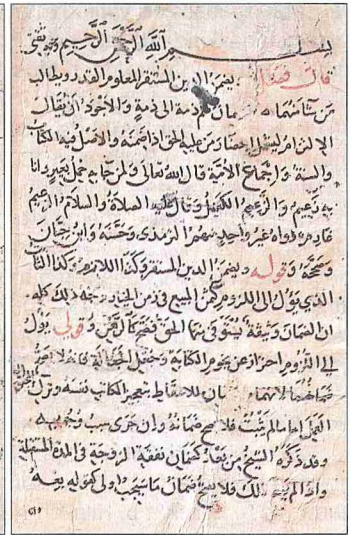 بسم الله الرحمن الرحيم وبه ثقتي
قال فصل يضمن الدين المستقر المعلوم القدر ويطالب
من شاء منهما ضمان ذمة الى ذمة والاجود ان يقال
الالتزام ليشمل احضار من عليه الحق اذا ضمنه والاصل فيه الكتاب
والسنة واجماع الامة قال الله تعالى ولمن جاء به حمل بعير وانا
به زعيم والزعيم الكفيل وقال عليه الصلاة والسلام الزعيم
غارم رواه غير واحد منهم الترمذي وحسنه وابن حبان
وصححه وقوله ويضمن الدين المستقر وكذا اللازم وكذا الثابت
الذي يؤل الى اللزوم كثمن المبيع في زمن الخيار وجه ذلك كله
ان الضمان وثيقة يستوفى منها الحق فصح كالرهن وقولي يؤل
الى اللزوم احتراز عن نجوم الكتابة وجعل الجعالة فانه لا يجوز
ضمانهما لانهما للاسقاط بتعجيز الكاتب نفسه وترك
العمل اما ما لم يثبت فلا يصح ضمانه وان جرى سبب وجوبه
وقد ذكره الشيخ من بعد كضمان نفقة الزوجة في المدة المستقبلة
واذا لم يصح ذلك فلا يصح ضمان ما سيجب اولى كقوله بعه